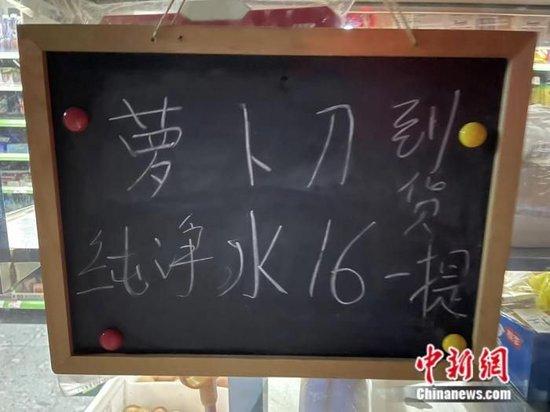 萝卜刀到货
纯净水16一提
中新网
Chinanews.com